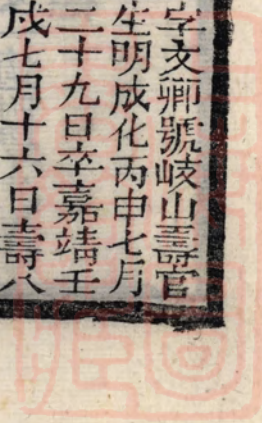 字文卿號岐山壽官
生明成化丙申七月
二十九日卒嘉靖壬
戌七月十六日壽八